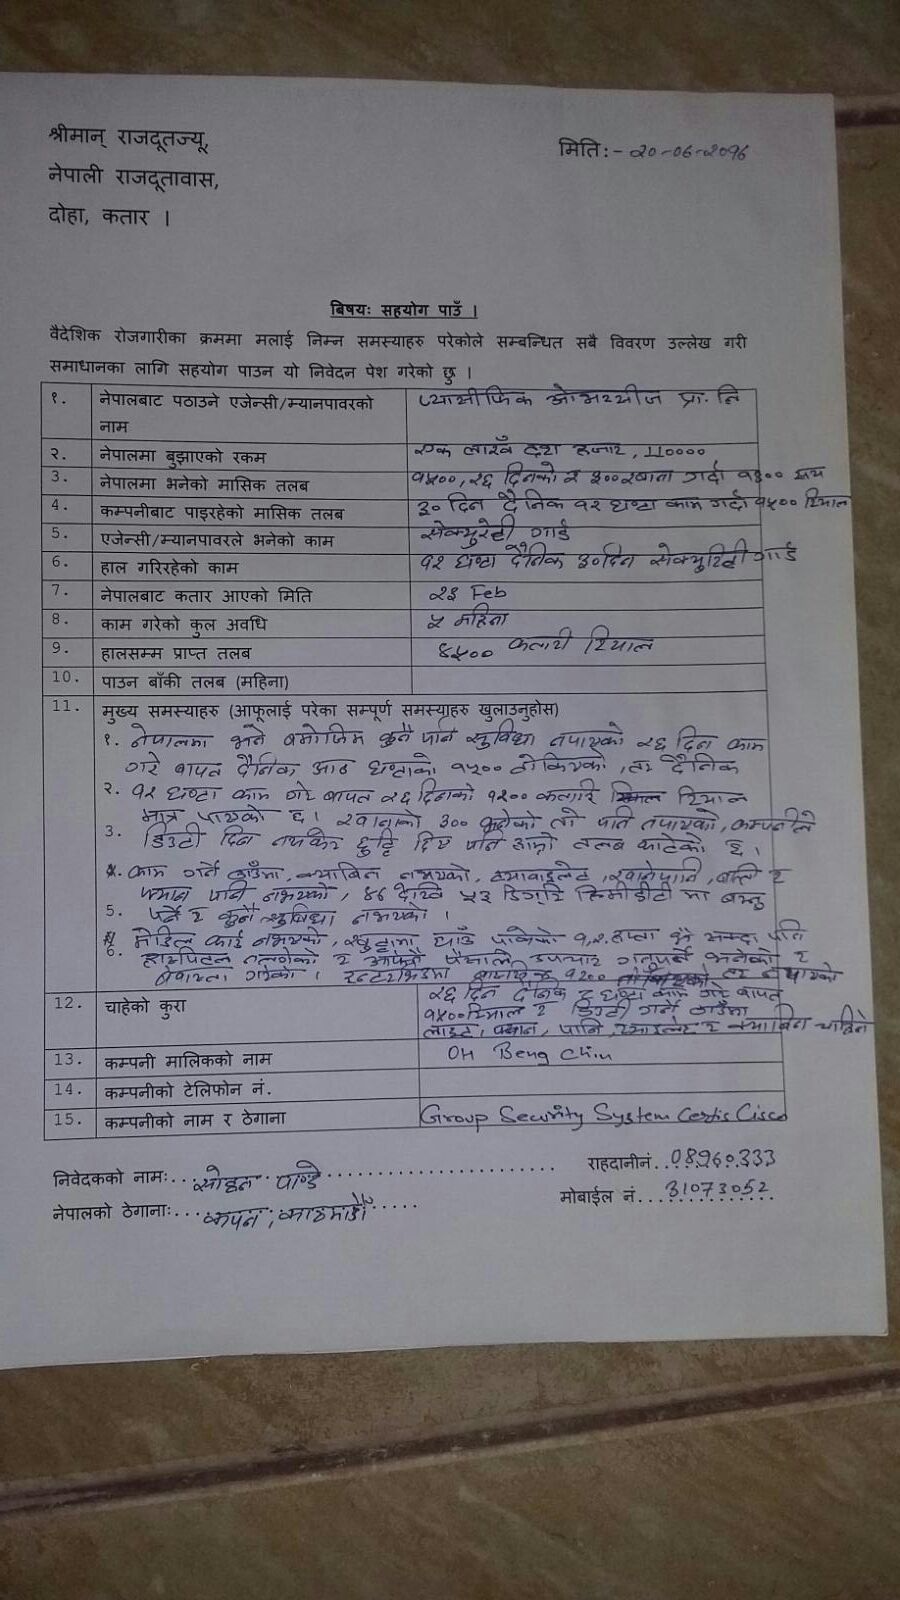 श्रीमान् राजदूतज्यू,
मिति:- २०-०६-२०१६
नेपाली राजदूतावास,
दोहा, कतार ।
बिषयः सहयोग पाउँ ।
वैदेशिक रोजगारीका क्रममा मलाई निम्न समस्याहरु परेकोले सम्बन्धित सबै विवरण उल्लेख गरी
समाधानका लागि सहयोग पाउन यो निवेदन पेश गरेको छु ।
१. नेपालबाट पठाउने एजेन्सी/म्यानपावरको
नाम
प्यासीफिक ओभरसीज प्रा.लि
२. नेपालमा बुझाएको रकम एक लाख दश हजार, ११००००
3. नेपालमा भनेको मासिक तलब १५००, २६ दिनको र ३०० खाना गर्दा १८००
4. कम्पनीबाट पाइरहेको मासिक तलब ३० दिन दैनिक १२ घण्टा काम गर्दा १५०० रियाल
5. एजेन्सी/म्यानपावरले भनेको काम सेक्युरेटी गार्ड
6. हाल गरिरहेको काम १२ घण्टा दैनिक ३० दिन सेक्युरिटी गार्ड
7. नेपालबाट कतार आएको मिति २३ Feb
8. काम गरेको कुल अवधि ५ महिना
9. हालसम्म प्राप्त तलब ४५०० कतारी रियाल
10. पाउन बाँकी तलब (महिना)
11. मुख्य समस्याहरु (आफूलाई परेका सम्पूर्ण समस्याहरु खुलाउनुहोस)
१. नेपालमा भने बमोजिम कुनै पनि सुविधा नपाएको २६ दिन काम
गरे बापत दैनिक आठ घण्टाको १५०० तोकिएको, तर दैनिक
२. १२ घण्टा काम गरे बापत २६ दिनको १२०० कतारि रियाल
मात्र पाएको छ। खानाको ३०० भनेको त्यो पनि नपाएको, कम्पनीले
3. डिउटी दिन नसकेर छुट्टि दिए पनि हाम्रो तलब काटेको छ।
४. काम गर्ने ठाउँमा, क्याबिन नभएको, ट्वाइलेट, खानेपानि, बत्ती र
पंखा पनि नभएको, ४६ देखि ५३ डिग्रि मा बस्नु
5. पर्ने र कुनै सुविधा नभएको।
मेडिकल कार्ड नभएको, खुट्टामा घाउँ पाकेको १,२ हप्ता हुँदा पनि
6. हस्पिटल नलगेको र आफ्नै पैसाले उपचार गर्नुपर्ने भनेको र
बेवास्ता गरेको।
12. चाहेको कुरा २६ दिन दैनिक ८ घण्टा काम गरे बापत
१५०० रियाल र डिउटी गर्ने ठाउँमा
लाइट, पंखा, पानि, ट्वाइलेट र क्याबिन चाहिने
13. कम्पनी मालिकको नाम OH Beng Chin
14. कम्पनीको टेलिफोन नं.
15. कम्पनीको नाम र ठेगाना Group Security System Certis Cisco
निवेदकको नामः सोहन पाण्डे राहदानीनं. 08960333
नेपालको ठेगानाः कपन, काठमाडौं मोबाईल नं. 31073052